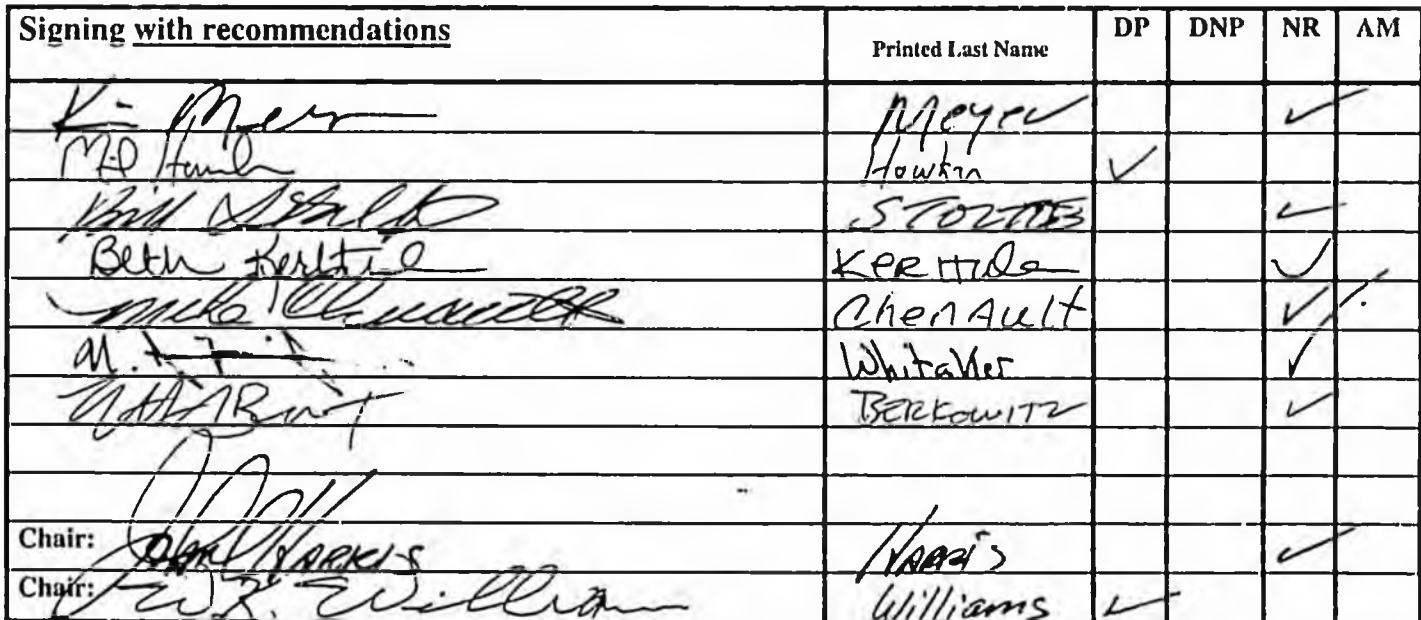 Signing with recommendations Printed Last Name DP DNP NR AM
Meyer ✓
Hawkin ✓
Bill STOLTZE ✓
Beth Kerttula Kerttula ✓
Mike Chenault Chenault ✓
M. Whitaker ✓
BERKOWITZ ✓
Chair: John HARRIS HARRIS ✓
Chair: W.K. Williams Williams ✓